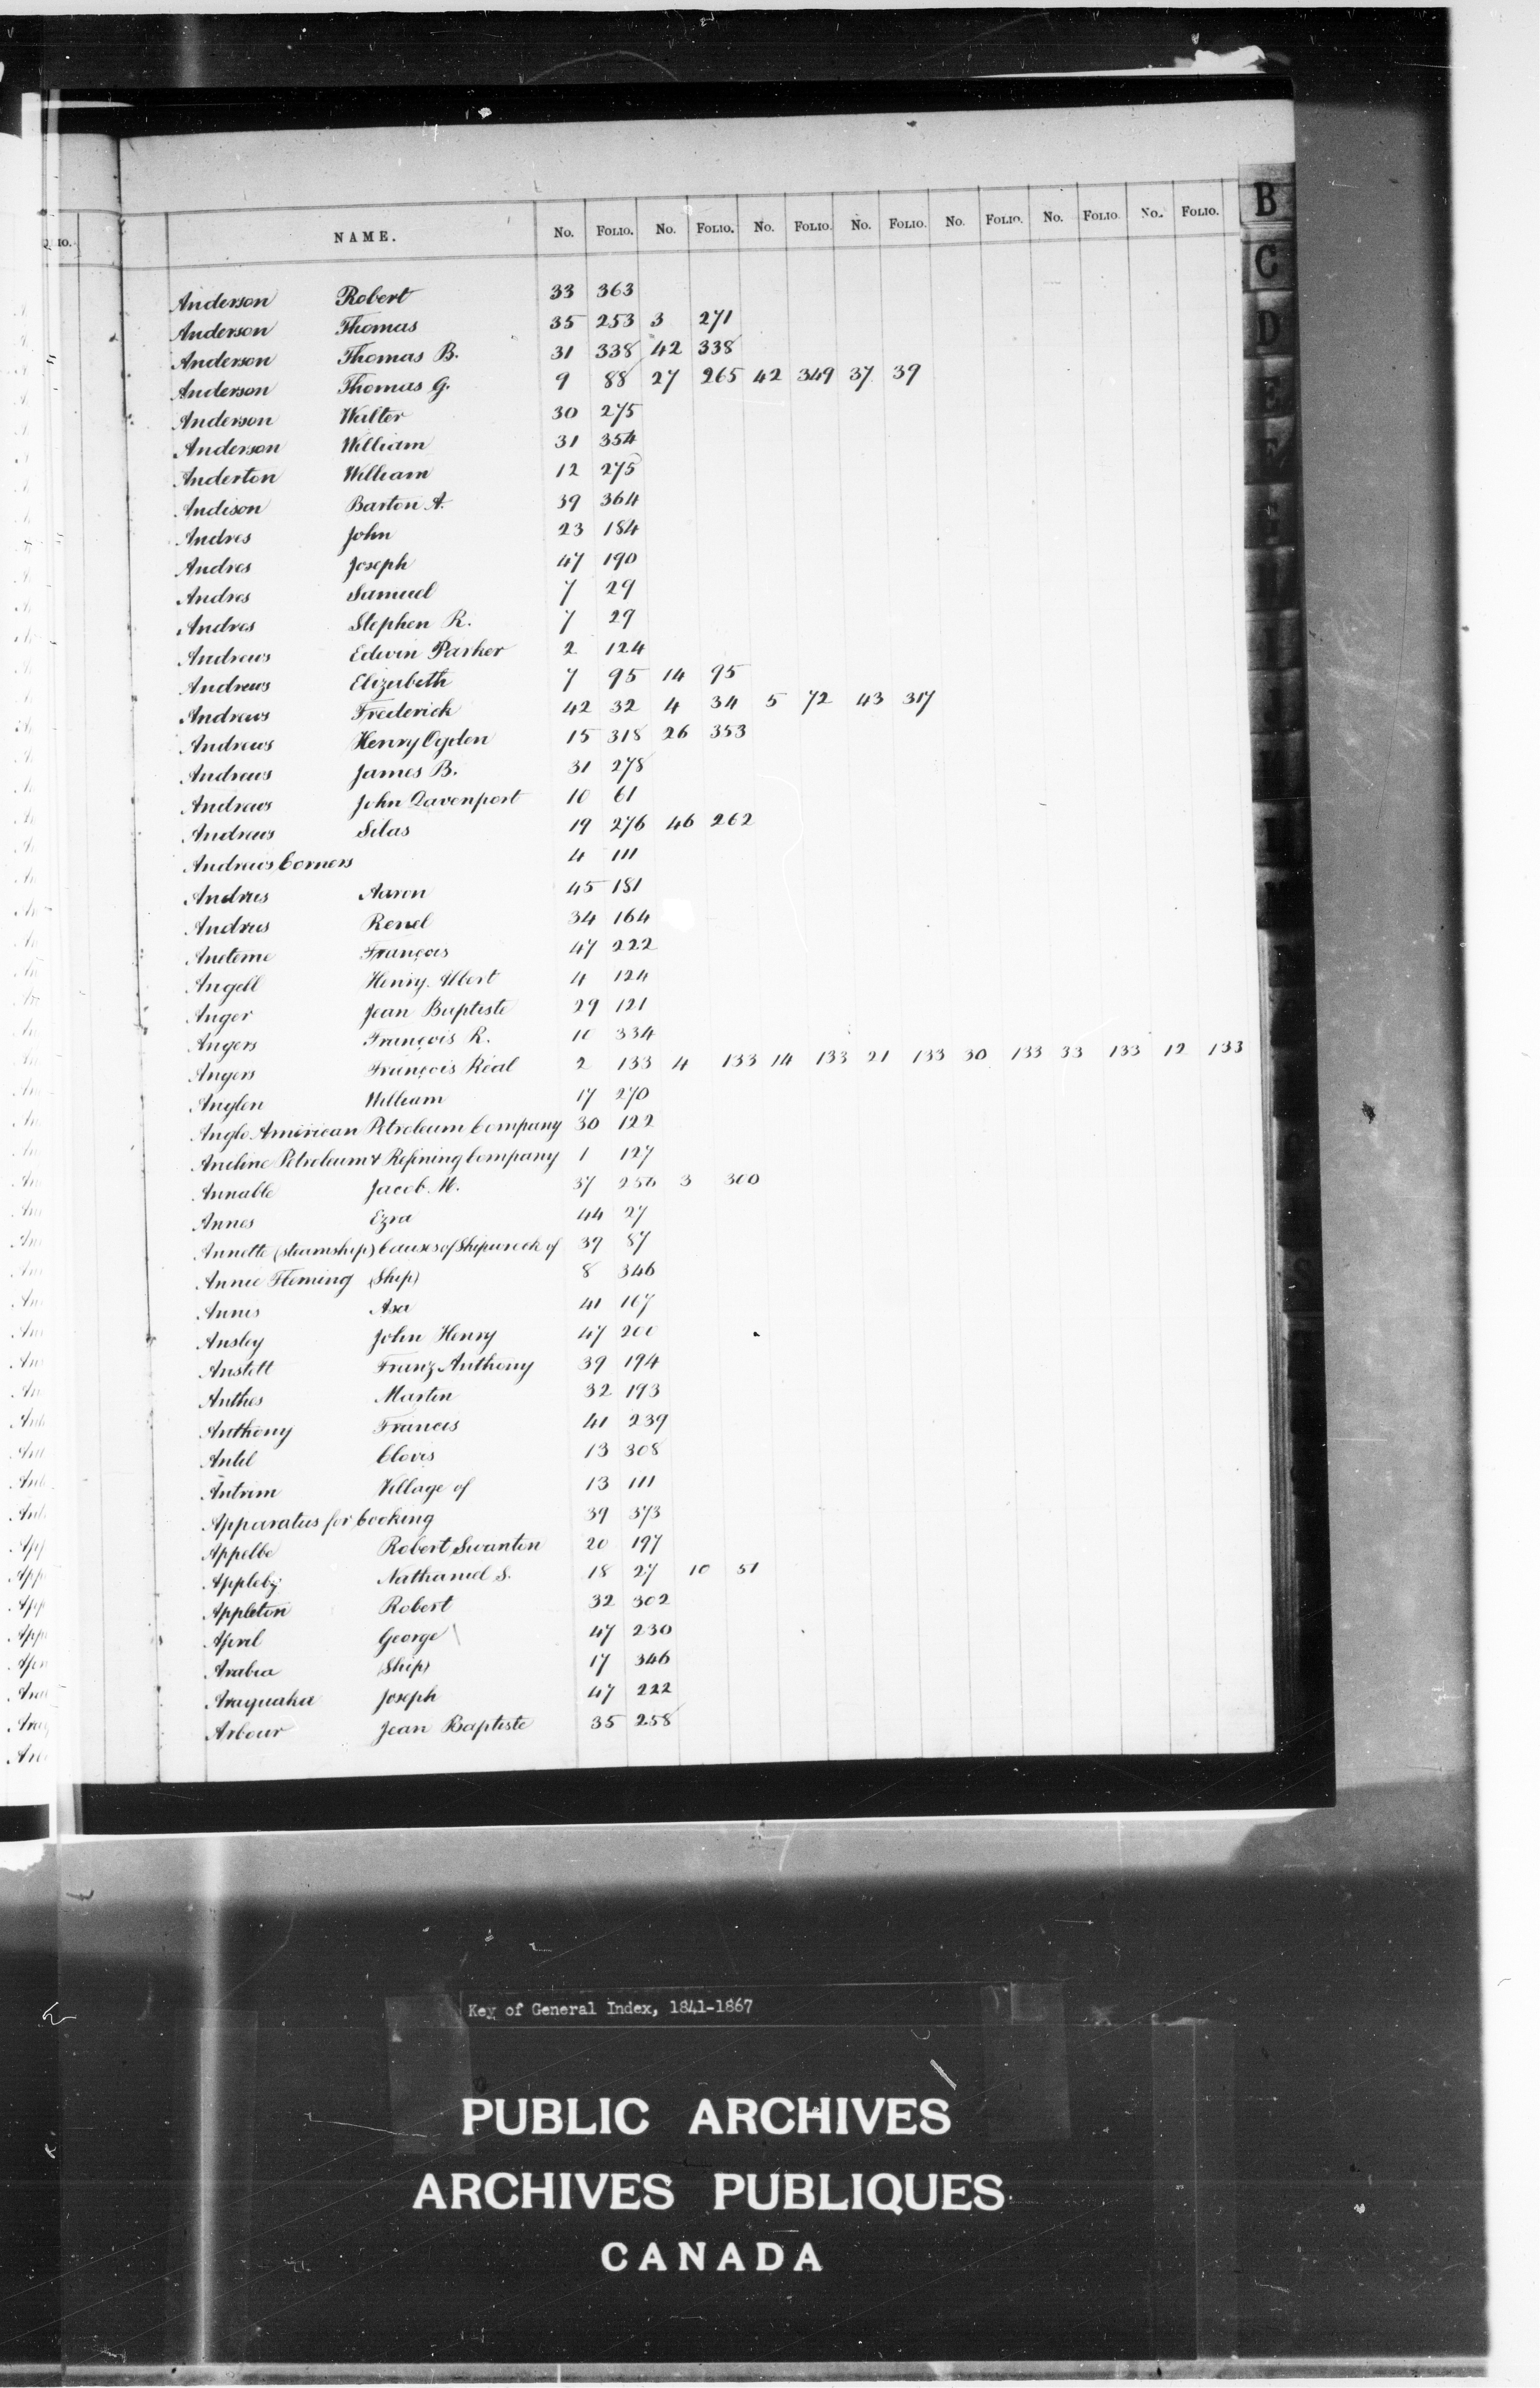 NAME. No. FOLIO. No. FOLIO. No. FOLIO. No. FOLIO. No. FOLIO. No. FOLIO. No. FOLIO.
Anderson Robert 33 363
Anderson Thomas 35 253 3 271
Anderson Thomas B. 31 338 42 338
Anderson Thomas G. 9 88 27 265 42 349 37 39
Anderson Walter 30 275
Anderson William 31 354
Anderton William 12 275
Andison Barton A. 39 364
Andres John 23 184
Andres Joseph 47 190
Andres Samuel 7 29
Andres Stephen R. 7 29
Andrews Edwin Parker 2 124
Andrews Elizabeth 7 95 14 95
Andrews Frederick 42 32 4 34 5 72 43 317
Andrews Henry Ogden 15 318 26 353
Andrews James B. 31 278
Andrews John Davenport 10 61
Andrews Silas 19 276 46 262
Andrews Corners 4 111
Andrus Aaron 45 181
Andrus Renel 34 164
François 47 222
Angell Henry Albert 4 124
Anger Jean Baptiste 29 121
Angers François R. 10 334
Angers François Réal 2 133 4 133 14 133 21 133 30 133 33 133 12 133
Anglen William 17 270
Anglo American Petroleum Company 30 122
Aniline Petroleum & Refining Company 1 127
Annable Jacob M. 37 256 3 300
Annes Ezra 44 27
Annette (steamship) Causes of Shipwreck of 39 87
Annie Fleming (Ship) 8 346
Annis Asa 41 167
Ansley John Henry 47 200
Anstett Franz Anthony 39 194
Anthes Martin 32 193
Anthony Francis 41 239
Antil Clovis 13 308
Antrim Village of 13 111
Apparatus for Cooking 39 373
Appelbe Robert Swanton 20 197
Appleby Nathaniel S. 18 27 10 51
Appleton Robert 32 302
April George 47 230
Arabia (Ship) 17 346
Araquaha Joseph 47 222
Arbour Jean Baptiste 35 258
B
C
D
E
F
G
H
I
J
Key of General Index, 1841-1867
PUBLIC ARCHIVES
ARCHIVES PUBLIQUES
CANADA